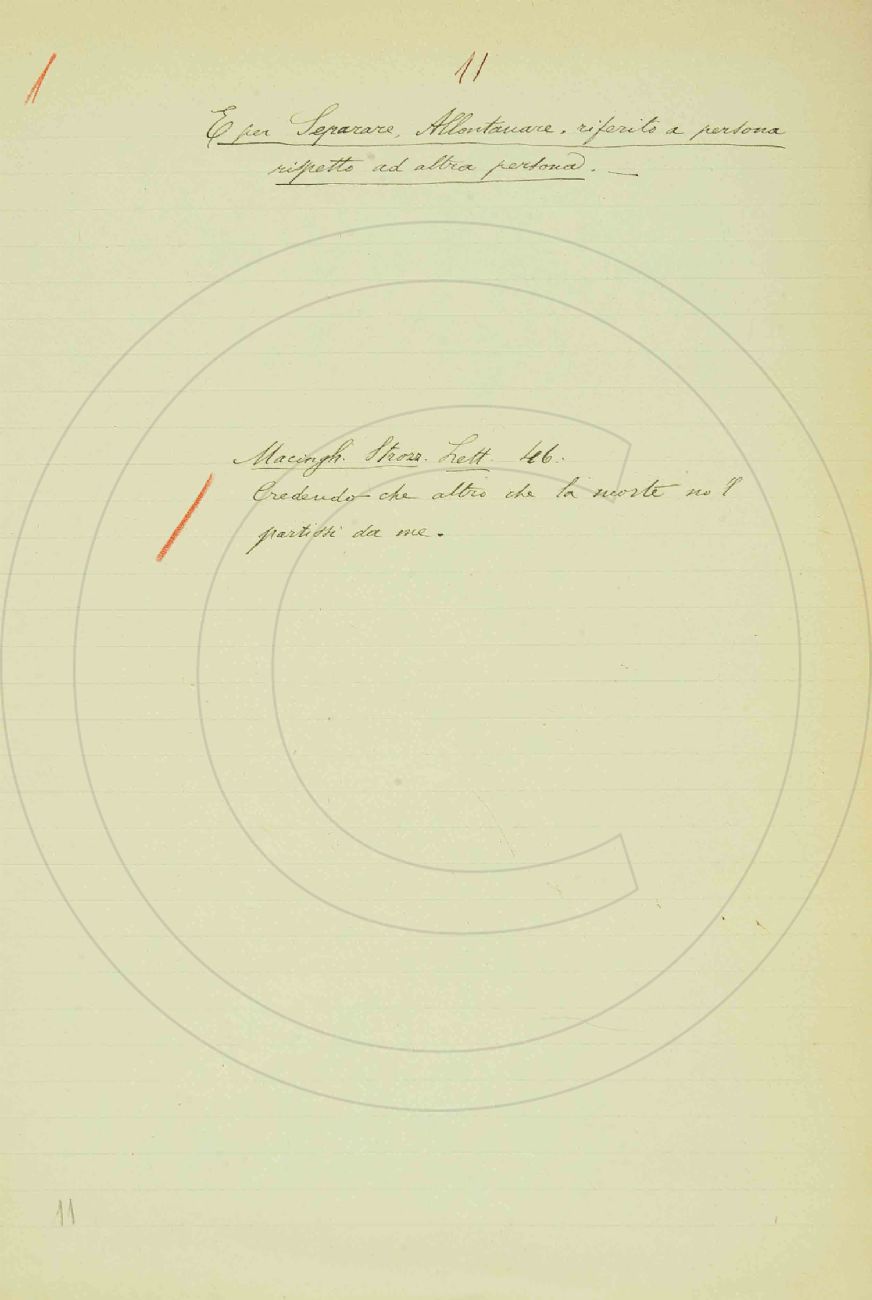 11
E per Separare, Allontanare, riferito a persona
rispetto ad altra persona. —
Macingh. Strozz. Lett. 46.
Credendo che altro che la morte no 'l
partissi da me.
11